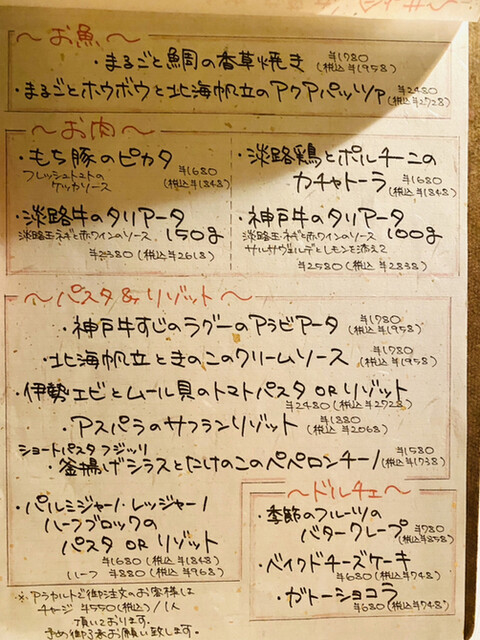 〜お魚〜
・まるごと鯛の香草焼き ¥1780
(税込¥1958)
・まるごとホウボウと北海帆立のアクアパッツァ ¥2480
(税込¥2728)
〜お肉〜
・もち豚のピカタ
フレッシュトマトの
ケッカソース
¥1680
(税込¥1848)
・淡路鶏とポルチーニの
カチャトーラ
¥1680
(税込¥1848)
・淡路牛のタリアータ
淡路玉ネギと赤ワインのソース 150g
¥2380 (税込¥2618)
・神戸牛のタリアータ
淡路玉ネギと赤ワインのソース 100g
サルサヴェルデとレモンを添えて
¥2580 (税込¥2838)
〜パスタ&リゾット〜
・神戸牛すじのラグーのアラビアータ ¥1780
(税込¥1958)
・北海帆立ときのこのクリームソース ¥1780
(税込¥1958)
・伊勢エビとムール貝のトマトパスタ OR リゾット
¥2480 (税込¥2728)
・アスパラのサフランリゾット ¥1880
(税込¥2068)
ショートパスタ フジッリ
・釜揚げシラスとたけのこのペペロンチーノ ¥1580
(税込¥1738)
・パルミジャーノ・レッジャーノ
ハーフブロックの
パスタ OR リゾット
¥1680 (税込¥1848)
ハーフ ¥880 (税込¥968)
〜ドルチェ〜
・季節のフルーツの
バタークレープ ¥780
(税込¥858)
・ベイクドチーズケーキ
¥680 (税込¥748)
・ガトーショコラ
¥680 (税込¥748)
※アラカルトで御注文のお客様は
チャージ ¥550(税込)/1人
頂いております。
お願い致します。